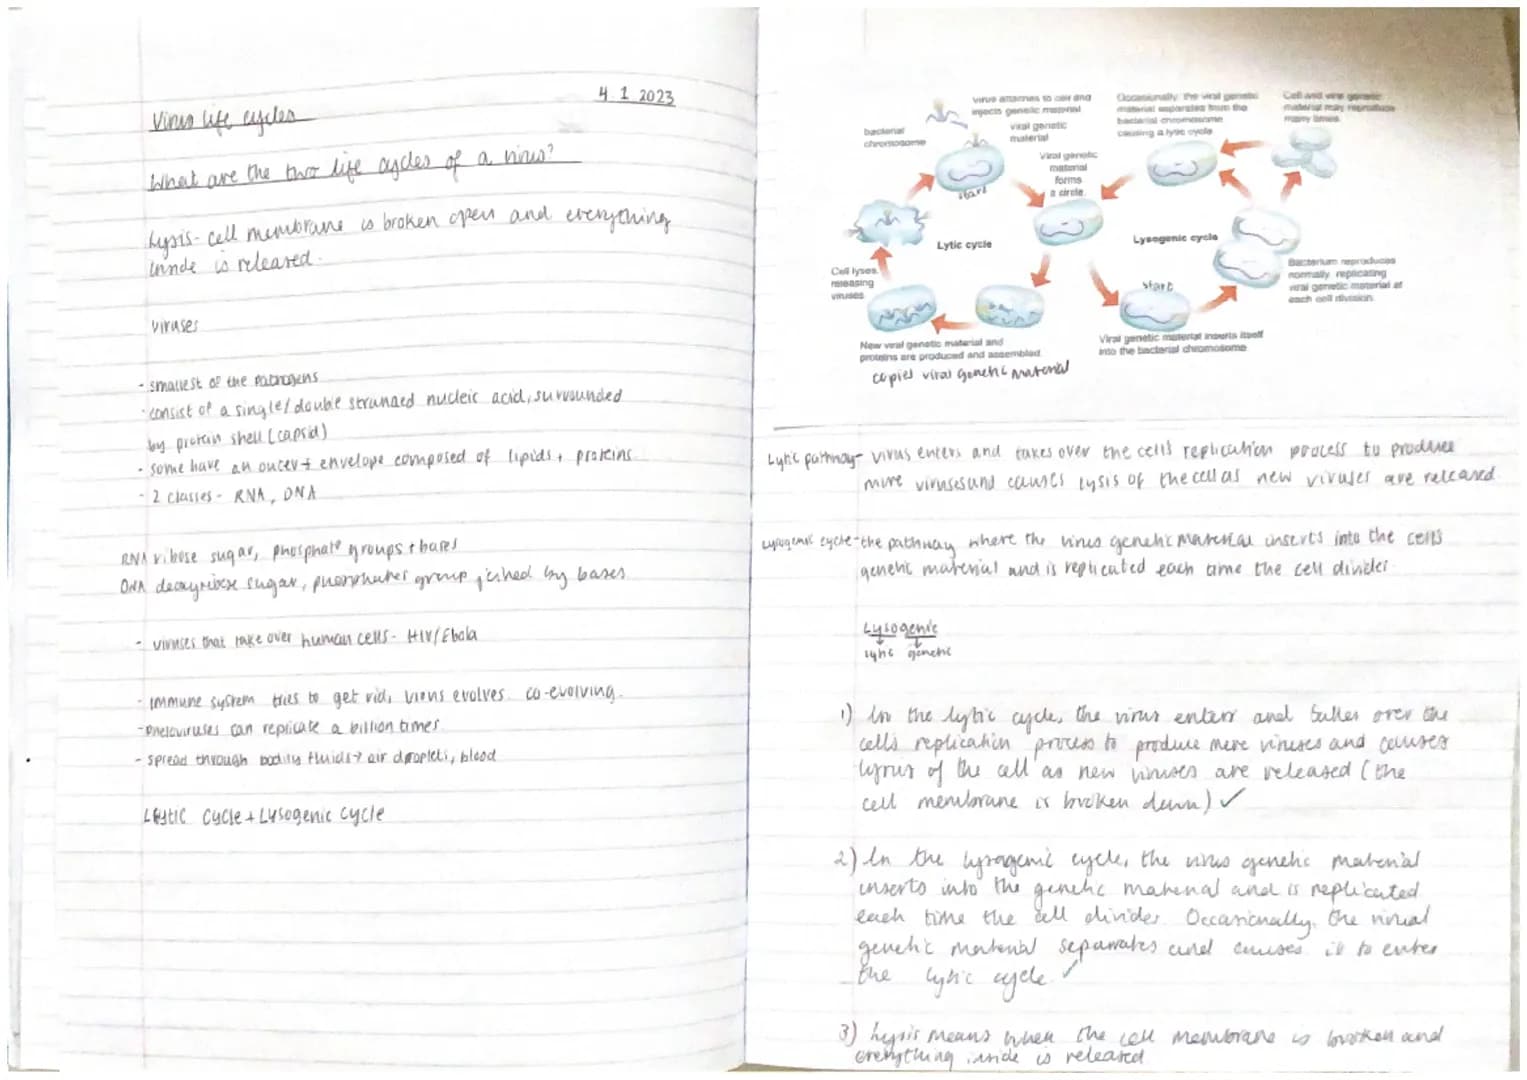 4.1.2023
Virus life cycles
What are the two life cycles of a virus?
Lysis- cell membrane is broken open and everything
inside is released.
viruses
- smallest of the pathogens
- consist of a single/double stranded nucleic acid, surrounded
by protein shell (capsid)
- some have an outer envelope composed of lipids + proteins
- 2 classes - RNA, DNA
RNA ribose sugar, phosphate groups + bases
DNA deoxyribose sugar, phosphates group joined by bases
- viruses that take over human cells - HIV/Ebola
- immune system tries to get rid, virus evolves. co-evolving.
can replicate a billion times
- spread through bodily fluids → air droplets, blood
Lytic cycle + Lysogenic cycle
virus attaches to cell and
injects genetic material
bacterial
chromosome
viral genetic
material
start
Viral genetic
material
forms
a circle.
Occasionally, the viral genetic
material separates from the
bacterial chromosome
causing a lytic cycle
Cell and virus genetic
material may reproduce
many times
Lytic cycle
Lysogenic cycle
Cell lyses,
releasing
viruses
start
Bacterium reproduces
normally replicating
viral genetic material at
each cell division
New viral genetic material and
proteins are produced and assembled
Viral genetic material inserts itself
into the bacterial chromosome
copies viral genetic material
Lytic pathway- virus enters and takes over the cells replication process to produce
more viruses and causes lysis of the cell as new viruses are released.
Lysogenic cycle- the pathway where the virus genetic material inserts into the cells
genetic material and is replicated each time the cell divides
Lysogenic
lytic genetic
1) In the lytic cycle, the virus enters and takes over the
cells replication process to produce more viruses and causes
lysis of the cell as new viruses are released (the
cell membrane is broken down) ✓
2) In the lysogenic cycle, the virus genetic material
inserts into the genetic material and is replicated
each time the cell divides. Occasionally, the viral
genetic material separates and causes it to enter
the lytic cycle. ✓
3) Lysis means when the cell membrane is broken and
everything inside is released